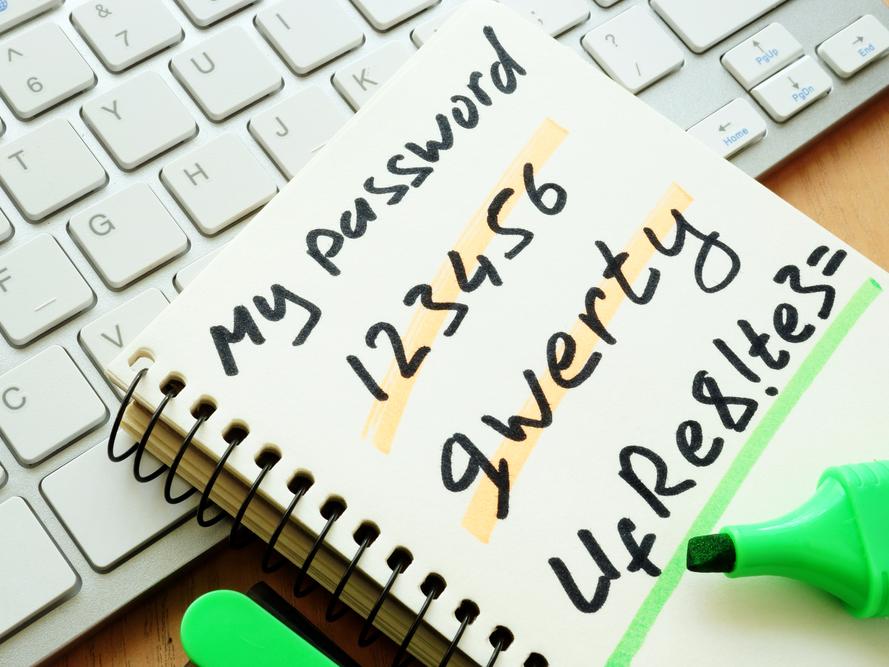 My password
123456
qwerty
UfRe8!te3=
^
6
&
7
Y
U
I
T
H
J
K
F
G
C
V
?
/
PgUp
PgDn
Home
End